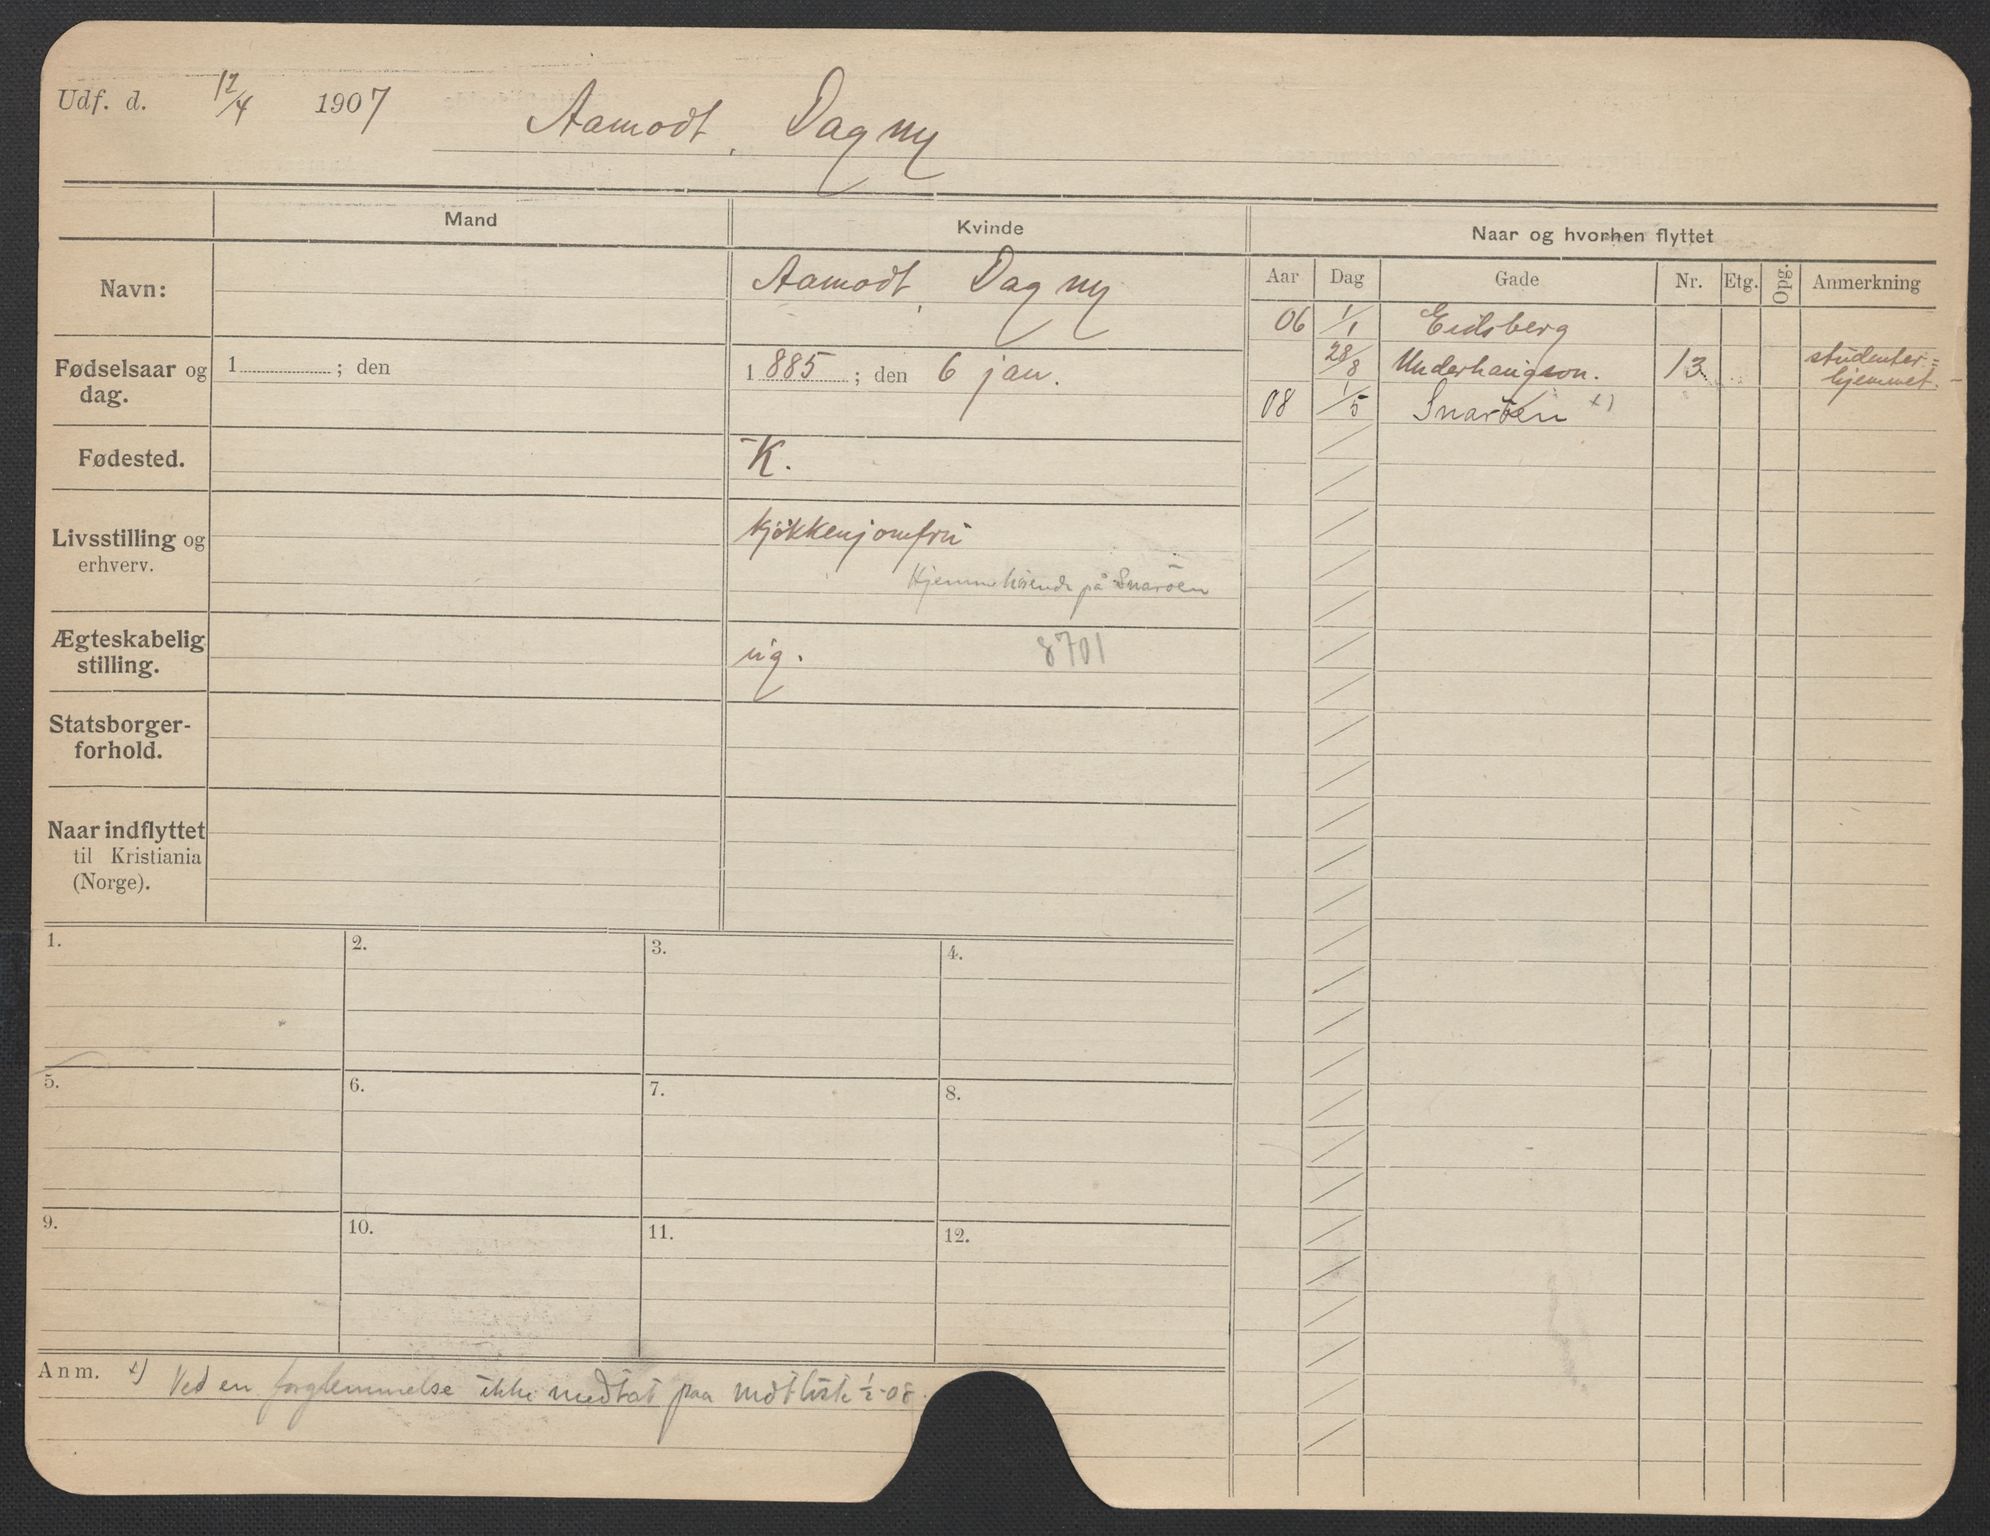 Udf. d. 12/4 1907 Aamodt, Dagny
Mand Kvinde Naar og hvorhen flyttet
Aar Dag Gade Nr. Etg. Opg. Anmerkning
Navn: Aamodt, Dagny
06 1/1 Eidsberg
28/8 Underhaugsvn. 13 studenter=
hjemmet.
08 1/5 Snaröen x)
Fødselsaar og
dag.
1 ; den
1885; den 6 jan.
Fødested. K.
Livsstilling og
erhverv.
kjökkenjomfru
Hjemmehörende på Snaröen
Ægteskabelig
stilling.
ug. 8701
Statsborger-
forhold.
Naar indflyttet
til Kristiania
(Norge).
1. 2. 3. 4.
5. 6. 7. 8.
9. 10. 11. 12.
Anm. x) Ved en forglemmelse ikke medtat paa mdtliste 1/2-08.